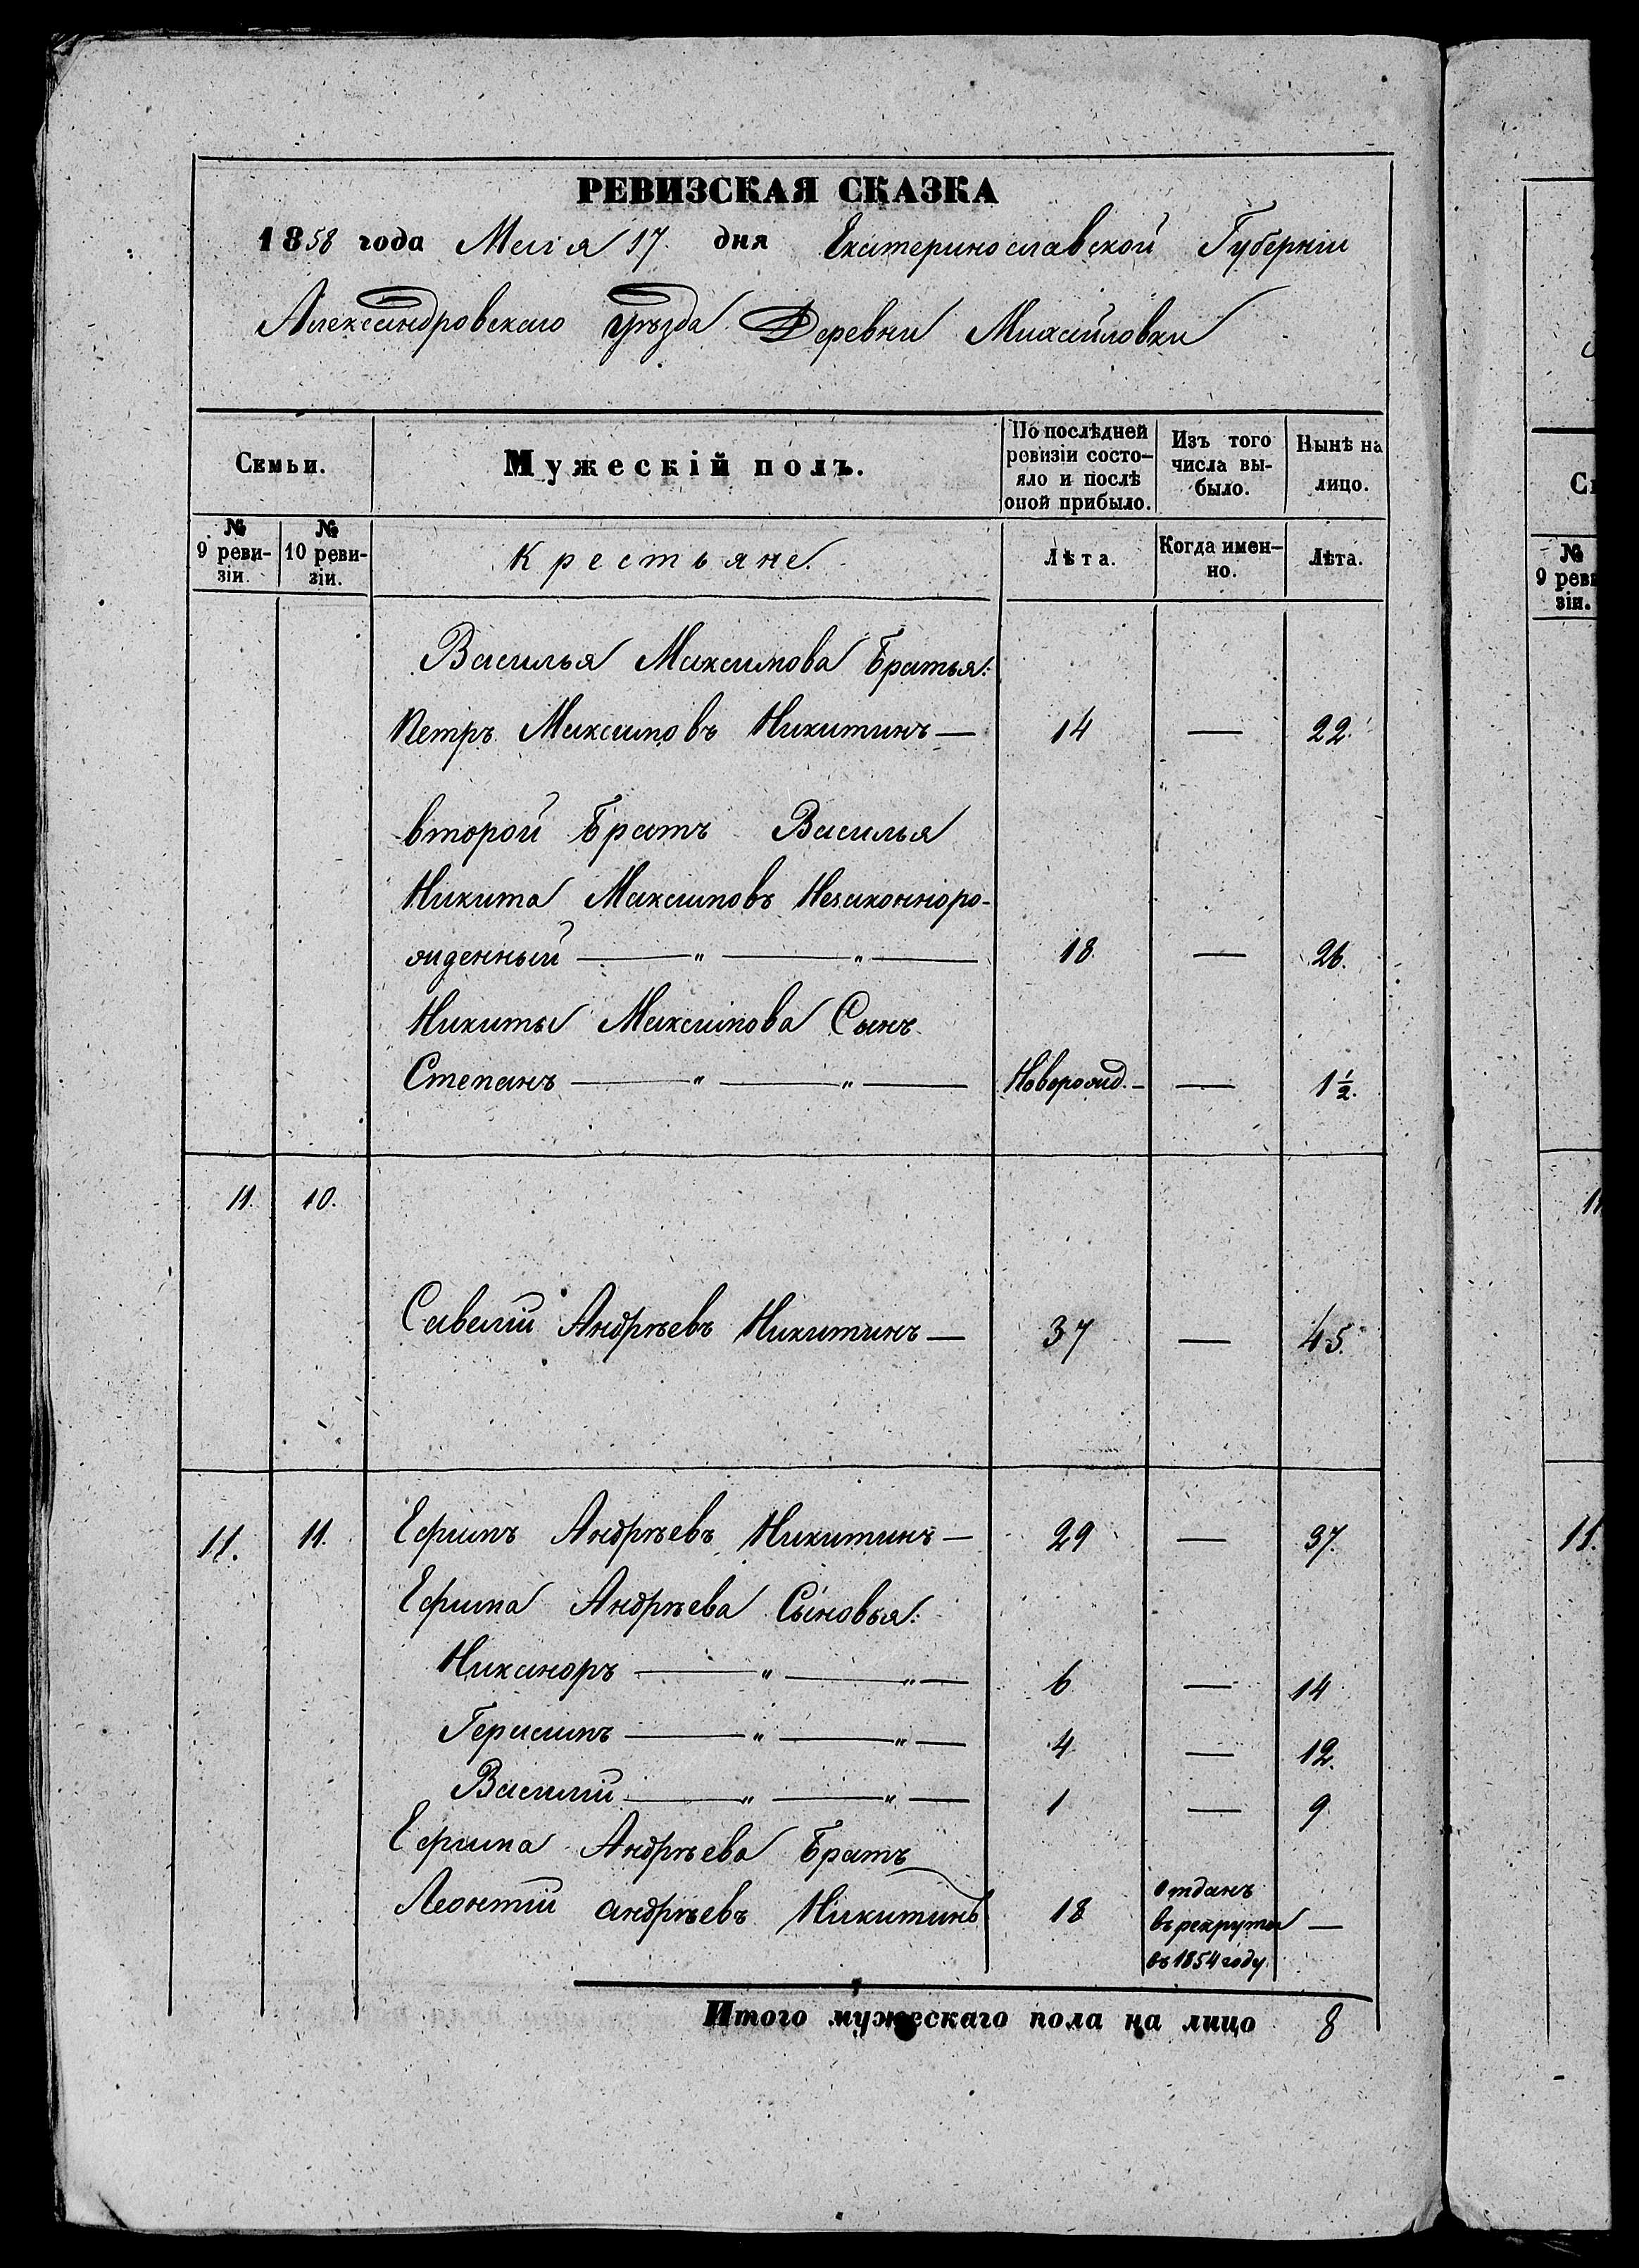 РЕВИЗСКАЯ СКАЗКА
1858 года Маія 17. дня Екатеринославской Губерніи
Александровскаго уѣзда Деревни Михайловки
Семьи.
Мужескій полъ.
По послѣдней ревизіи состо-
яло и послѣ
оной прибыло.
Изъ того
числа вы-
было.
Нынѣ на
лицо.
№ 9 реви-
зіи.
№ 10 реви-
зіи.
Крестьяне.
Лѣта.
Когда имен-
но.
Лѣта.
Василья Максимова Братья:
Петръ Максимовъ Никитинъ — 14 — 22.
второй Братъ Василья
Никита Максимовъ Незаконноро-
жденный — „ — „ — 18. — 26.
Никиты Максимова Сынъ
Степанъ — „ — „ — Новорожд. — — 1½.
11. 10.
Савелій Андрѣевъ Никитинъ — 37 — 45.
11. 11. Ефимъ Андрѣевъ Никитинъ — 29 — 37.
Ефима Андрѣева Сыновья:
Никаноръ — „ — „ — 6 — 14
Герасимъ — „ — „ — 4 — 12.
Василій — „ — „ — 1 — 9
Ефима Андрѣева Братъ
Леонтій андрѣевъ Никитинъ 18 отданъ
въ рекруты —
въ 1854 году
Итого мужескаго пола на лицо 8
№
9 реви
зіи.
11.